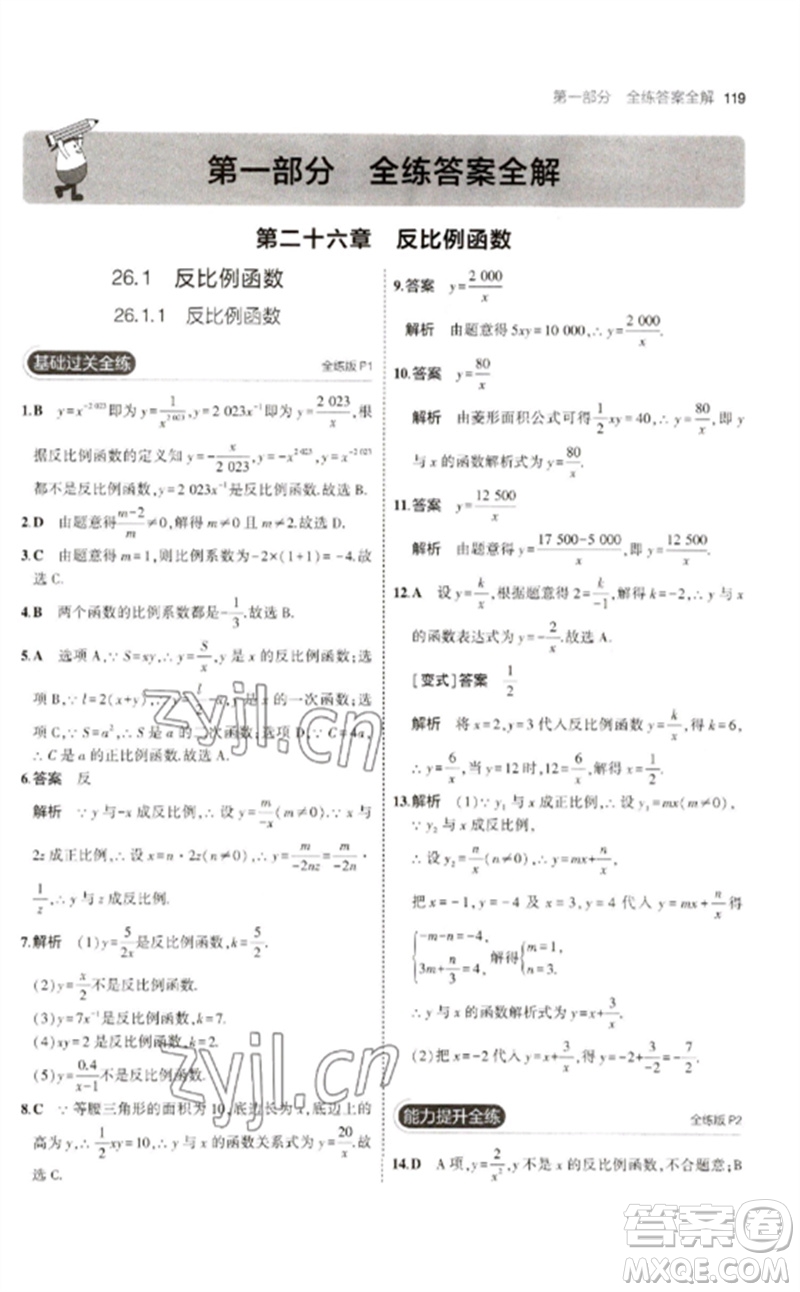 第一部分 全练答案全解 119
第一部分 全练答案全解
第二十六章 反比例函数
26.1 反比例函数
26.1.1 反比例函数
基础过关全练 全练版P1
1.B y=x^{-2 023}即为y=1/x^{2 023},y=2 023x^{-1}即为y=2 023/x,根
据反比例函数的定义知y=-x/2 023,y=-x^{2 023},y=x^{-2 023}
都不是反比例函数,y=2 023x^{-1}是反比例函数.故选B.
2.D 由题意得(m-2)/m≠0,解得m≠0且m≠2.故选D.
3.C 由题意得m=1,则比例系数为-2×(1+1)=-4.故
选C.
4.B 两个函数的比例系数都是-1/3.故选B.
5.A 选项A,∵S=xy,∴y=S/x,y是x的反比例函数;选
项B,∵l=2(x+y),∴y=l/2-x,y是x的一次函数;选
项C,∵S=a²,∴S是a的二次函数;选项D,∵C=4a,
∴C是a的正比例函数.故选A.
6.答案 反
解析 ∵y与-x成反比例,∴设y=m/-x(m≠0).∵x与
2z成正比例,∴设x=n·2z(n≠0),∴y=m/-2nz=m/-2n·
1/z,∴y与z成反比例.
7.解析 (1)y=5/2x是反比例函数,k=5/2.
(2)y=x/2不是反比例函数.
(3)y=7x^{-1}是反比例函数,k=7.
(4)xy=2是反比例函数,k=2.
(5)y=0.4/(x-1)不是反比例函数.
8.C ∵等腰三角形的面积为10,底边长为x,底边上的
高为y,∴1/2xy=10,∴y与x的函数关系式为y=20/x.故
选C.
9.答案 y=2 000/x
解析 由题意得5xy=10 000,∴y=2 000/x.
10.答案 y=80/x
解析 由菱形面积公式可得1/2xy=40,∴y=80/x,即y
与x的函数解析式为y=80/x.
11.答案 y=12 500/x
解析 由题意得y=(17 500-5 000)/x,即y=12 500/x.
12.A 设y=k/x,根据题意得2=k/-1,解得k=-2,∴y与x
的函数表达式为y=-2/x.故选A.
[变式]答案 1/2
解析 将x=2,y=3代入反比例函数y=k/x,得k=6,
∴y=6/x,当y=12时,12=6/x,解得x=1/2.
13.解析 (1)∵y₁与x成正比例,∴设y₁=mx(m≠0).
∵y₂与x成反比例,
∴设y₂=n/x(n≠0),∴y=mx+n/x.
把x=-1,y=-4及x=3,y=4代入y=mx+n/x得
{-m-n=-4, 3m+n/3=4, 解得{m=1, n=3.
∴y与x的函数解析式为y=x+3/x.
(2)把x=-2代入y=x+3/x,得y=-2+3/-2=-7/2.
能力提升全练 全练版P2
14.D A项,y=2/x²,y不是x的反比例函数,不合题意;B
zyjl.cn
zyjl.cn
答案圈
MXQE.COM